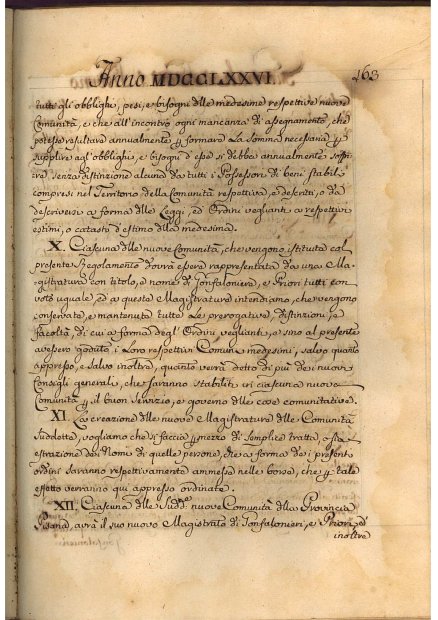 Anno MDCCLXXVI. 163
tutti gl'obblighi, pesi, e bisogni dlle medesime respettive nuove
Comunità, e che all'incontro ogni mancanza di assegnamento, che
potesse resultare annualmente p formare la Somma necessaria p
supplire agl'obblighi, e bisogni d'esse si debba annualmente soffri
re, senza distinzione alcuna da tutti i Possessori di beni stabili
compresi nel Territorio della Comunità respettiva, e descritti, o da
descriversi a forma dlle Leggi, ed Ordini veglianti a respettivi
estimi, o catasti d'estimo dlla medesima.
X. Ciascuna dlle nuove Comunità, che vengono istituite col
presente Regolamento dovrà essere rappresentata da una Ma-
gistratura con titolo, e nome di Gonfaloniere, e Priori tutti con
voto uguale, ed a questa Magistratura intendiamo, che vengono
conservate, e mantenute tutte le prerogative, distinzioni, e
facoltà, di cui a forma degl'Ordini veglianti, e sino al presente
avessero goduto i Loro respettivi Comuni medesimi, salvo quanto
appresso, e salvo inoltre, quanto verrà detto di più dei nuovi
Consigli generali, che saranno stabiliti in ciascuna nuova
Comunità p il buon Servizio, e governo dlle cose comunitative.
XI. La creazione dlle nuove Magistrature dlle Comunità
Suddette, vogliamo che si faccia p mezzo di semplice tratta, o sia
estrazione dei Nome di quelle persone, che a forma dei presenti
ordini saranno respettivamente ammesse nelle borse, che p tale
effetto verranno qui appresso ordinate.
XII. Ciascuna dlle Sudd.e nuove Comunità dlla Provincia
Pisana, avrà il suo nuovo Magistrato di Gonfalonieri, e Priori, ed
inoltre